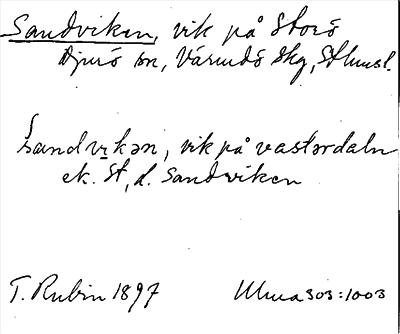 Sandviken, vik på Storö
Djurö sn, Värmdö skg, Sthmsl.
Sandvikən, vik på vastərdaln
ek. St, d. Sandviken
T. Rubin 1897 Ulma 303:1003